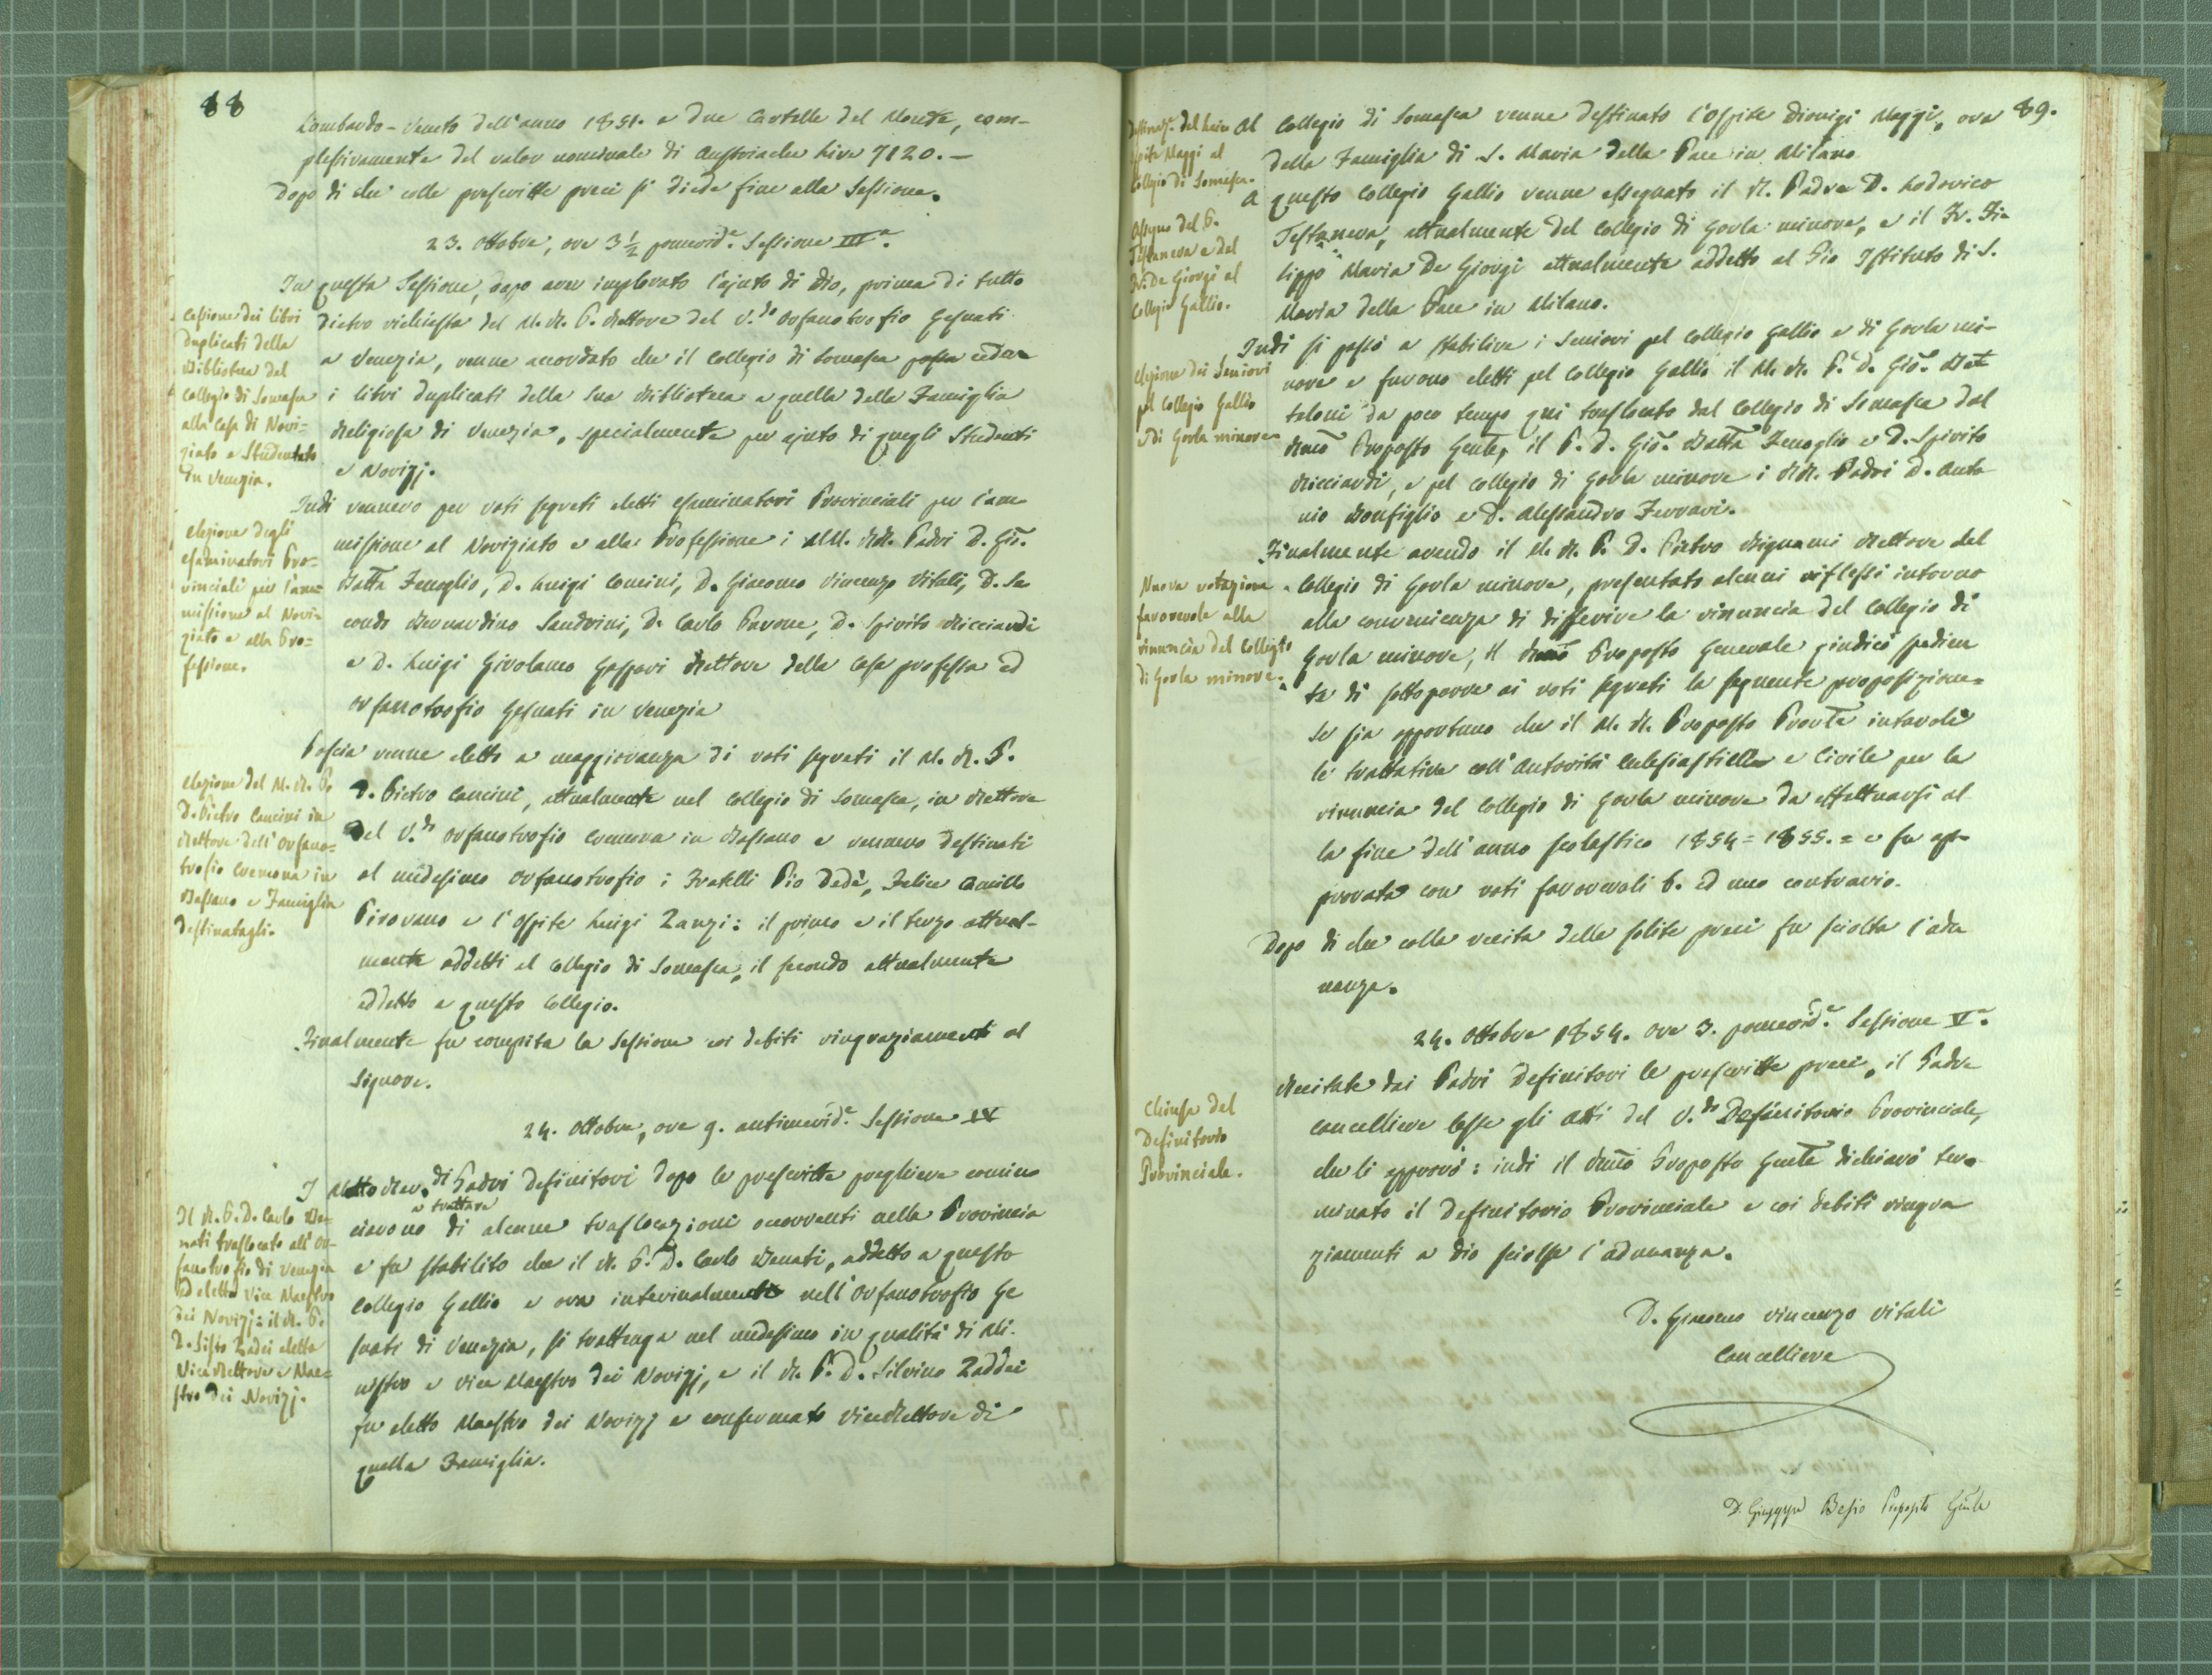 88
Lombardo-Veneto dell'anno 1851. e due Cartelle del Monte, com-
plessivamente del valor nominale di Austriache Lire 7120.—
Dopo di che colle prescritte preci si diede fine alla Sessione.
23. Ottobre, ore 3 1/2 pomerid.e Sessione III.a
In questa Sessione, dopo aver implorato l'ajuto di Dio, prima di tutto
Cessione dei libri
duplicati della
Biblioteca del
Collegio di Somasca
alla Casa di Novi=
ziato e Studentato
in Venezia.
dietro richiesta del M. R. P. Rettore del V.do Orfanotrofio Gesuati
a Venezia, venne accordato che il Collegio di Somasca possa cedere
i libri duplicati della sua Biblioteca a quella della Famiglia
Religiosa di Venezia, specialmente per ajuto di quegli Studenti
e Novizj.
Indi vennero per voti segreti eletti esaminatori Provinciali per l'am
elezione degli
esaminatori Pro=
vinciali per l'am=
missione al Novi=
ziato e alla Pro=
fessione.
missione al Noviziato e alla Professione i MM. RR. Padri D. Gio.
Batta Fenoglio, D. Luigi Concini, D. Giacomo Vincenzo Vitali, D. Se
condo Bernardino Sandrini, D. Carlo Pavone, D. Spirito Ricciardi
e D. Luigi Girolamo Gaspari Rettore della Casa professa ed
orfanotrofio Gesuati in Venezia
Poscia venne eletto a maggioranza di voti segreti il M. R. P.
elezione del M. R. P.
D. Pietro Cancini in
Rettore dell'Orfano=
trofio Cremona in
Bassano e Famiglia
destinatagli.
D. Pietro Cancini, attualmente nel Collegio di Somasca, in Rettore
del V.do Orfanotrofio Cremona in Bassano e vennero destinati
al medesimo orfanotrofio i Fratelli Pio Dedè, Felice Camillo
Pirovano e l'Ospite Luigi Zanzi: il primo e il terzo attual-
mente addetti al Collegio di Somasca, il secondo attualmente
addetto a questo Collegio.
Finalmente fu compita la Sessione coi debiti ringraziamenti al
Signore.
24. Ottobre, ore 9. antimerid.e Sessione IV
I Molto Rev.di Padri Definitori dopo le prescritte preghiere comin
Il R. P. D. Carlo Be=
nati traslocato all'Or=
fanotrofio di Venezia
ed eletto Vice Maestro
dei Novizj: il R. P.
D. Sisto Zadei eletto
Vice Rettore e Mae=
stro dei Novizj.
a trattare
ciarono di alcune traslocazioni occorrenti nella Provincia
e fu stabilito che il R. P. D. Carlo Benati, addetto a questo
Collegio Gallio e ora interinalmente nell'Orfanotrofio Ge
suati di Venezia, si trattenga nel medesimo in qualità di Mi-
nistro e vice Maestro dei Novizj, e il R. P. D. Silvino Zaddei
fu eletto Maestro dei Novizj e confermato ViceRettore di
quella Famiglia.
89.
Destinaz.e del laico
ospite Maggi al
Collegio di Somasca.
Al Collegio di Somasca venne destinato l'Ospite Dionigi Maggi, ora
della Famiglia di S. Maria della Pace in Milano
Assegno del P.
Testanera e del
Fr. De Giorgi al
Collegio Gallio.
A questo Collegio Gallio venne assegnato il R. Padre D. Lodovico
Testanera, attualmente del Collegio di Gorla minore, e il Fr. Fi-
lippo Maria De Giorgi attualmente addetto al Pio Istituto di S.
Maria della Pace in Milano.
elezione dei Seniori
pel Collegio Gallio
e di Gorla minore
Indi si passò a stabilire i Seniori pel Collegio Gallio e di Gorla mi-
nore e furono eletti pel Collegio Gallio il M. R. P. D. Gio. Bat
taloni da poco tempo qui traslocato dal Collegio di Somasca dal
Rmo Proposto Gente, il P. D. Gio. Batta Fenoglio e D. Spirito
Ricciardi, e pel Collegio di Gorla minore i RR. Padri D. Anto
nio Bonfiglio e D. Alessandro Ferrari.
Nuova votazione
favorevole alla
rinuncia del Collegio
di Gorla minore.
Finalmente avendo il M. R. P. D. Pietro Bignami Rettore del
Collegio di Gorla minore, presentato alcuni riflessi intorno
alla convenienza di differire la rinuncia del Collegio di
Gorla minore, il Rmo Proposto Generale giudicò spedien
te di sottoporre ai voti segreti la seguente proposizione=
Se sia opportuno che il M. R. Proposto Pronte intavoli
le trattative coll'Autorità Ecclesiastica e Civile per la
rinuncia del Collegio di Gorla minore da effettuarsi al
la fine dell'anno scolastico 1854=1855.= e fu ap
provata con voti favorevoli 6. ed uno contrario.
Dopo di che colla recita delle solite preci fu sciolta l'adu
nanza.
24. Ottobre 1854. ore 3. pomerid.e Sessione V.a
Chiusa del
Definitorio
Provinciale.
Recitate dai Padri Definitori le prescritte preci, il Padre
Cancelliere lesse gli Atti del V.do Definitorio Provinciale,
che li approvò: indi il Rmo Proposto Gente dichiarò ter-
minato il Definitorio Provinciale e coi debiti ringra
ziamenti a Dio sciolse l'adunanza.
D. Giacomo Vincenzo Vitali
Cancelliere
D. Giuseppe Besio Preposito Gnle